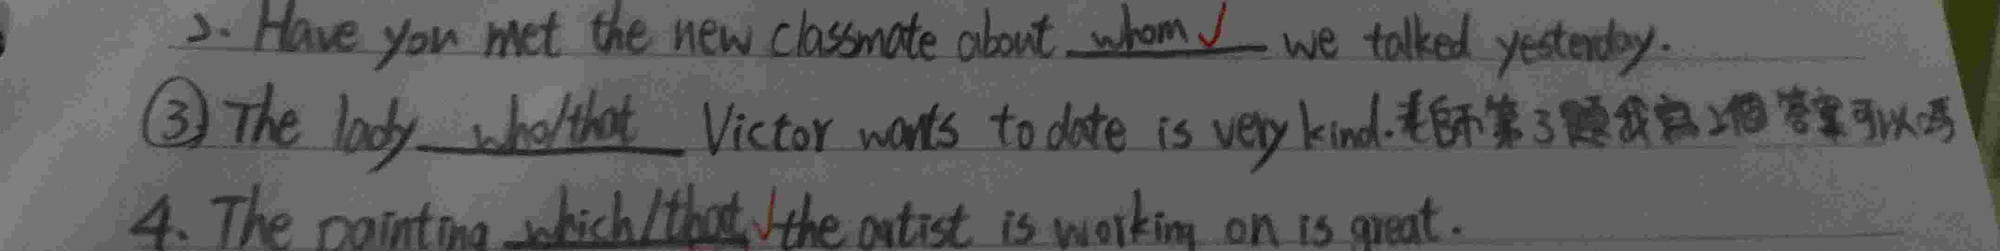 2. Have you met the new classmate about whom we talked yesterday.
③ The lady who/that Victor wants to date is very kind.老師第3題我寫2個答案可以嗎
4. The painting which/that the artist is working on is great.